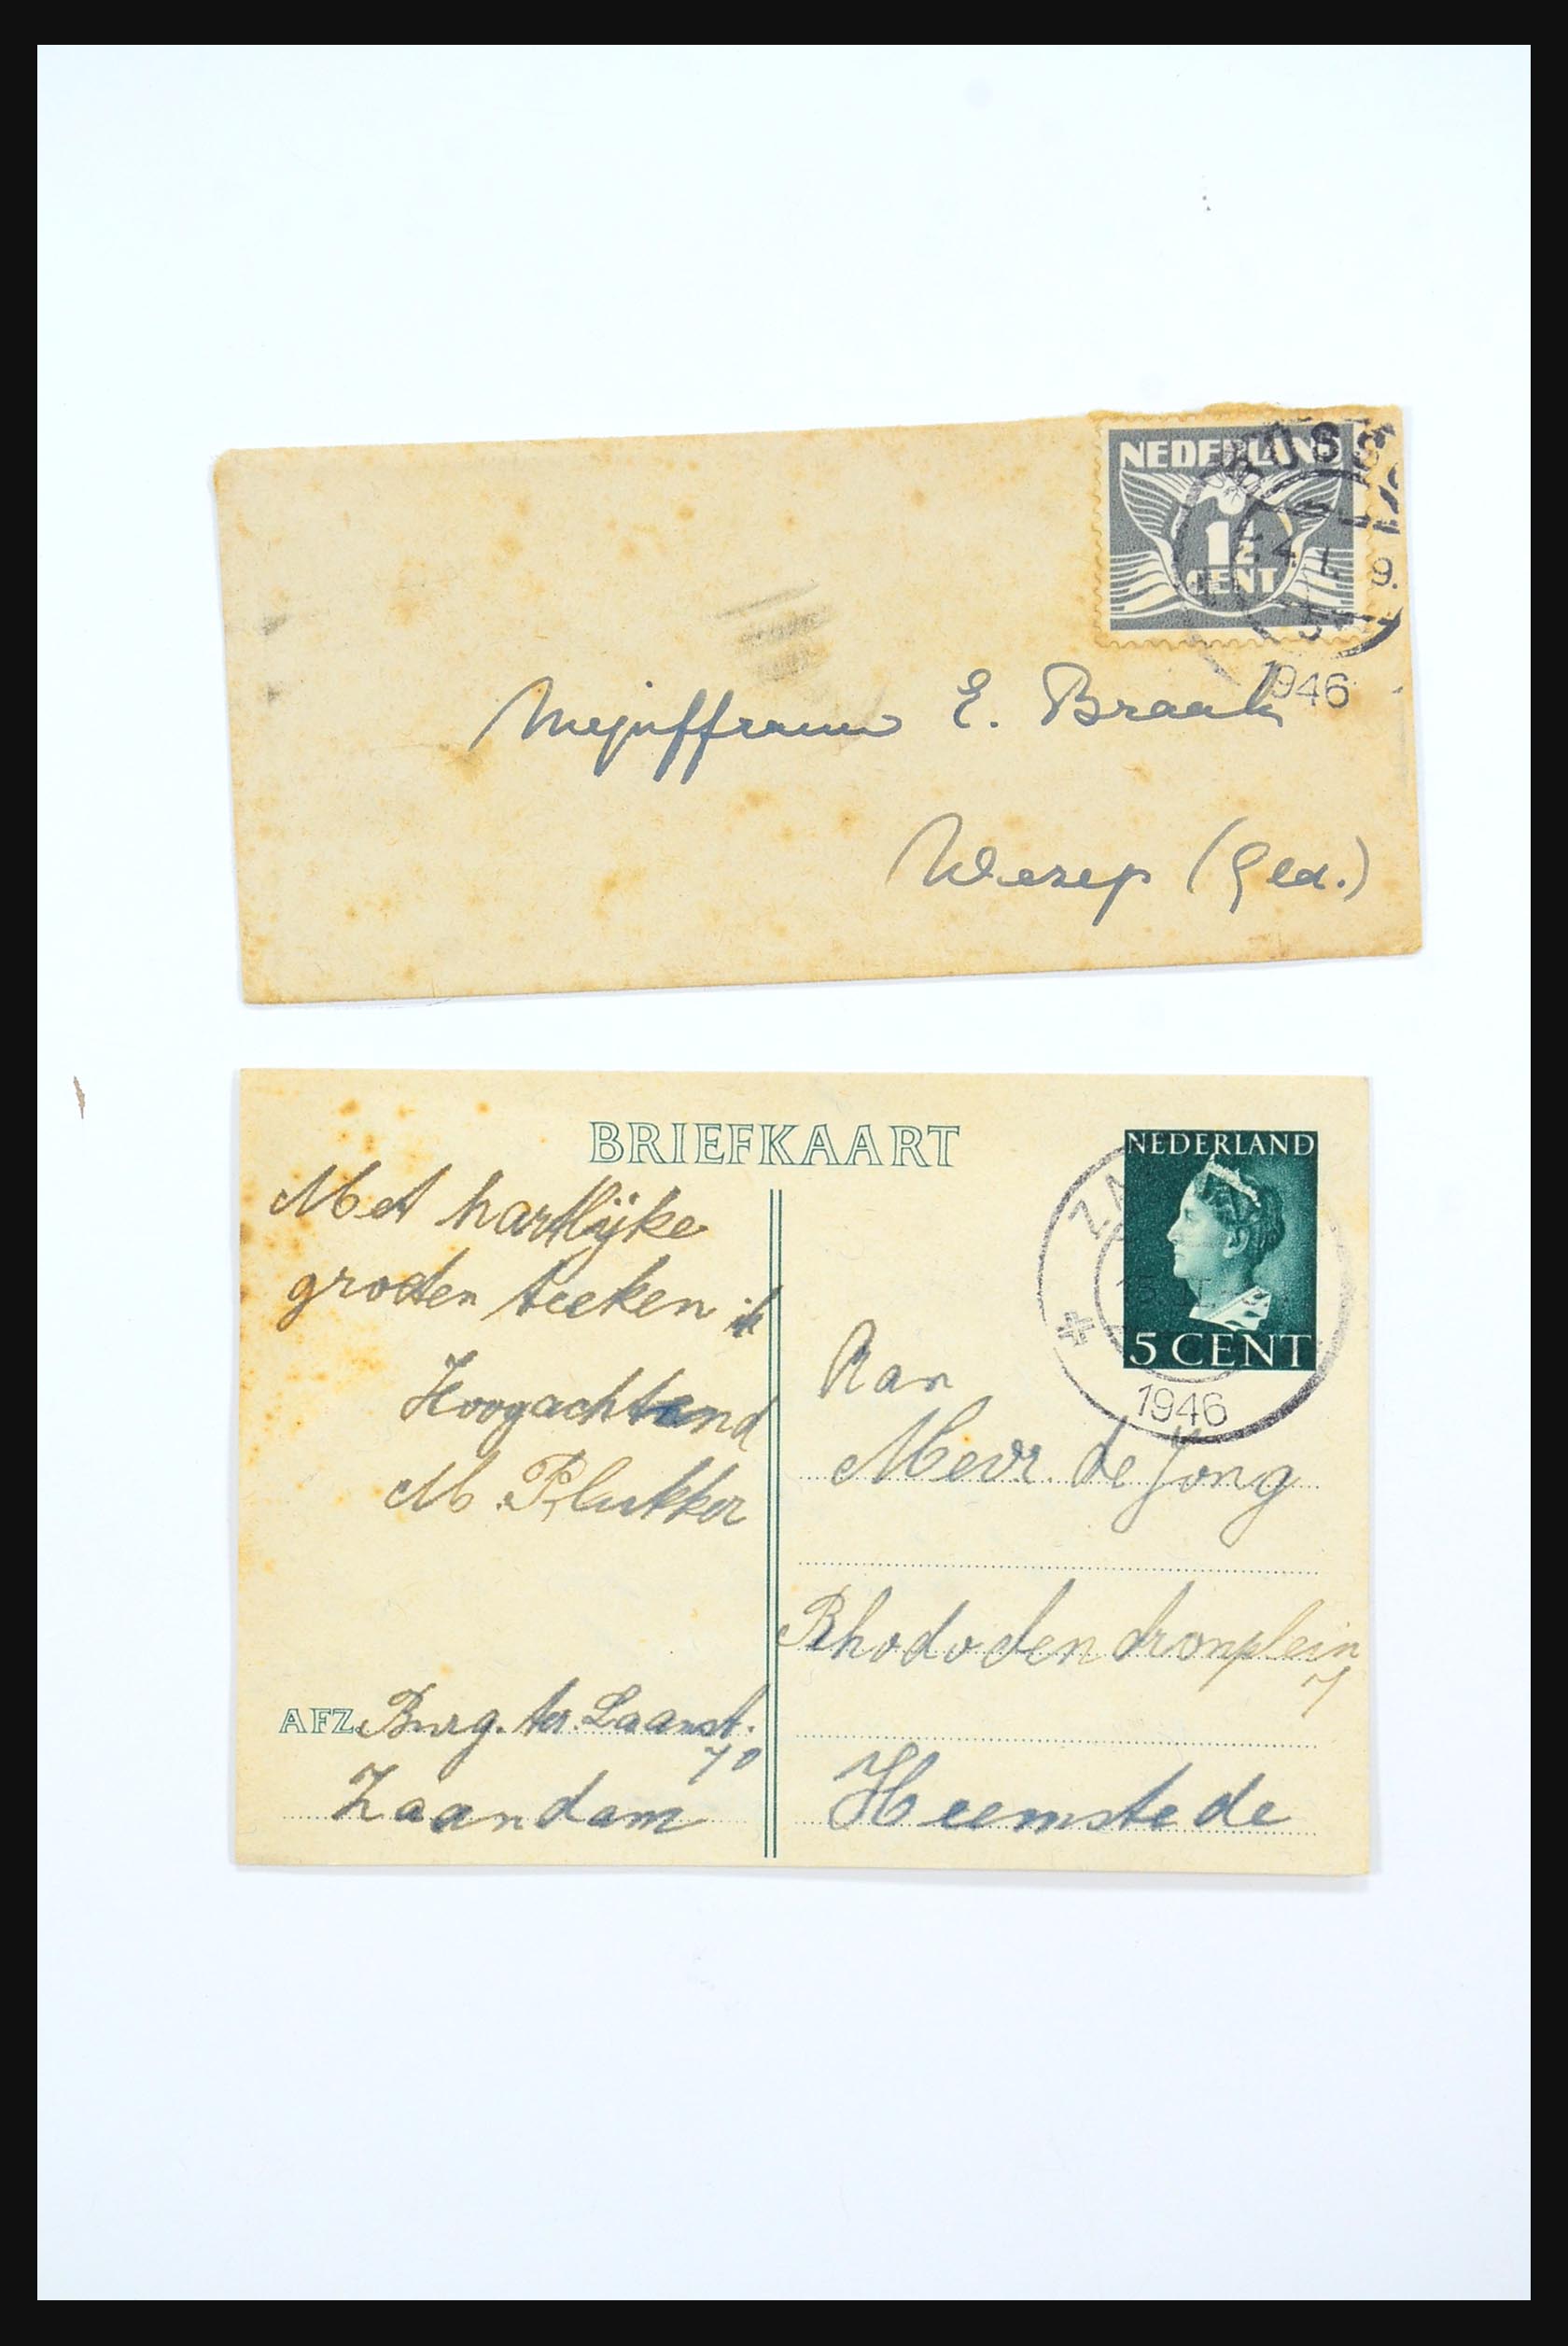 NEDERLAND
1½
CENT
1946
Mejuffrouw E. Braak
Wezep (Gld.)
BRIEFKAART
NEDERLAND
5 CENT
ZA
1946
Met hartlijke
groeten teeken ik
Hoogachtend
M. Plukker
AFZ. Burg. ter. Laanst.
70
Zaandam
Aan
Mevr. de Jong
Rhododendronplein
7
Heemstede